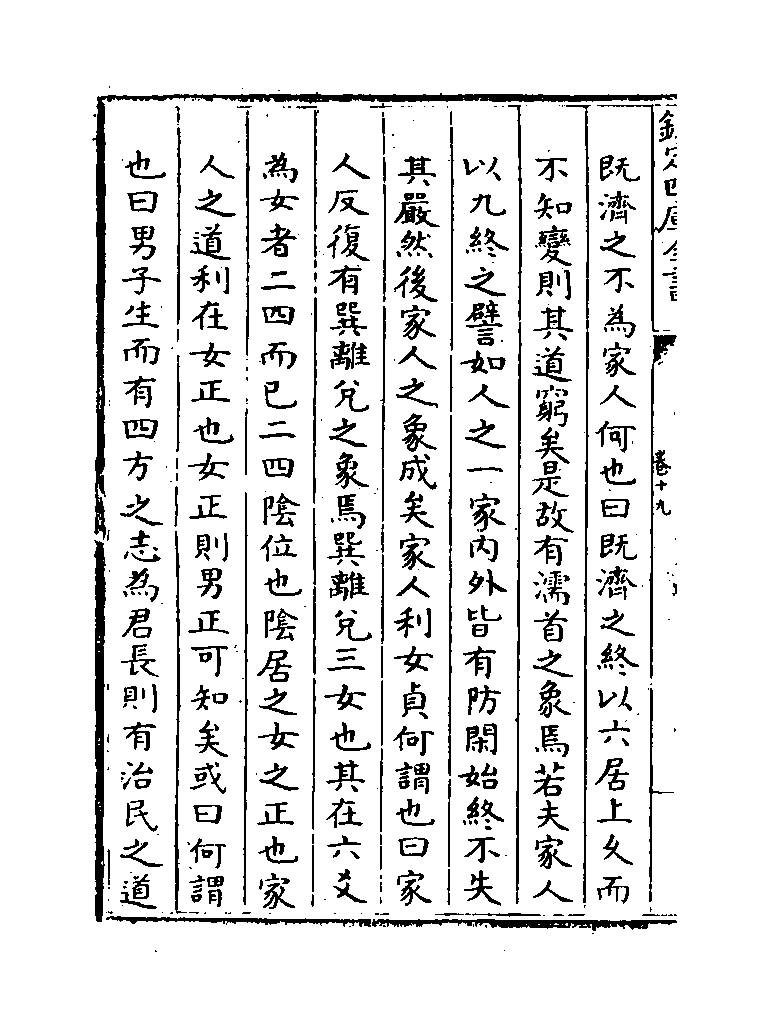 欽定四庫全書
卷十九
既濟之不為家人何也曰既濟之終以六居上久而
不知變則其道窮矣是故有濡首之象焉若夫家人
以九終之譬如人之一家内外皆有防閑始終不失
其嚴然後家人之象成矣家人利女貞何謂也曰家
人反復有巽離兌之象焉巽離兌三女也其在六爻
為女者二四而已二四陰位也陰居之女之正也家
人之道利在女正也女正則男正可知矣或曰何謂
也曰男子生而有四方之志為君長則有治民之道